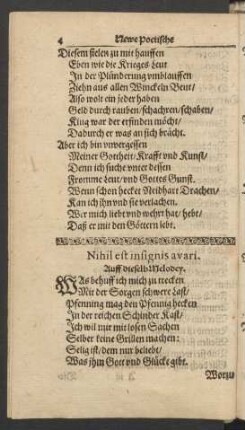 4 Newe Poetische
Diesem fielen zu mit hauffen
Eben wie die Krieges Leut
In der Plünderung vmblauffen
Ziehn aus allen Winckeln Beut/
Also wolt ein jeder haben
Geld durch rauben/schachren/schaben/
Klug war der erfinden möcht/
Dadurch er was an sich brächt.
Aber ich bin vnvergessen
Meiner Gottheit/Krafft vnd Kunst/
Denn ich suche vnter dessen
Fromme Leut/vnd Gottes Gunst.
Wenn schon hecket Neidhart Drachen/
Kan ich ihn vnd sie verlachen.
Wer mich liebt vnd wehrt hat/hebt/
Daß er mit den Göttern lebt.
Nihil est insignis avari.
Auff dieselb Melodey.
WAs behuff ich mich zu recken
Mit der Sorgen schwere Last/
Pfenning mag den Pfennig hecken
In der reichen Schinder Kast/
Ich wil nur mit losen Sachen
Selber keine Grillen machen:
Selig ist/dem nur beliebt/
Was ihm Gott vnd Glücke gibt.
Worzu